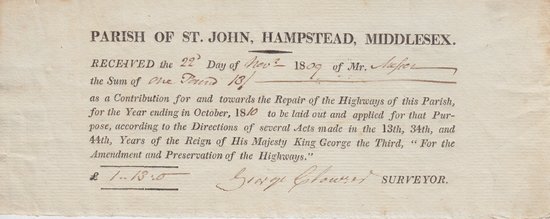 PARISH OF ST. JOHN, HAMPSTEAD, MIDDLESEX.
RECEIVED the 22d Day of Novr 1809 of Mr.
the Sum of One Pound 13/
as a Contribution for and towards the Repair of the Highways of this Parish,
for the Year ending in October, 1810 to be laid out and applied for that Pur-
pose, according to the Directions of several Acts made in the 13th, 34th, and
44th, Years of the Reign of His Majesty King George the Third, “For the
Amendment and Preservation of the Highways.”
£ 1-13-0 George SURVEYOR.